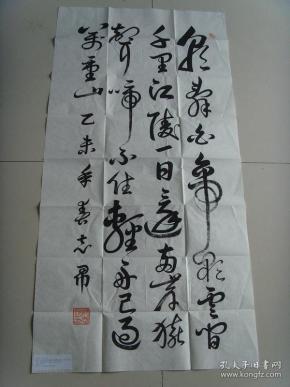 朝辞白帝彩云间
千里江陵一日还两岸猿
声啼不住轻舟已过
万重山 乙未年春志帚
孔夫子旧书网